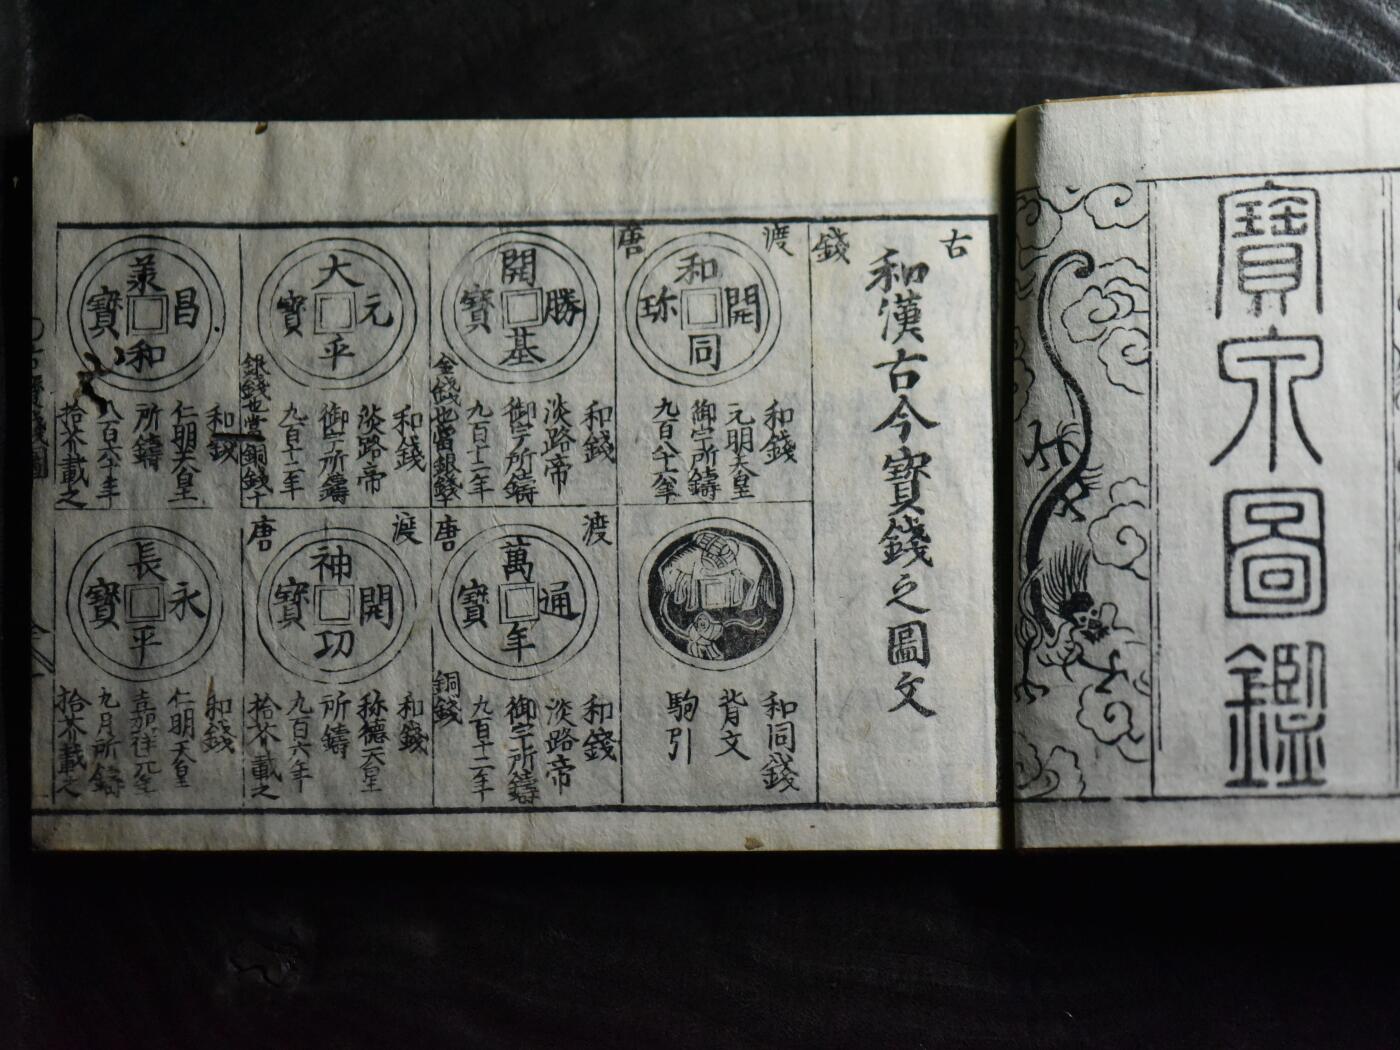 寶泉圖鑑
古
錢
和漢古今寳錢之圖文
渡
唐
和同開珎
和錢
元明天皇
御宇所鑄
和同錢
背文
駒引
開基勝寳
和錢
淡路帝
御宇所鑄
九百十二年
金錢也當銀錢十
渡
唐
萬年通寳
和錢
淡路帝
御宇所鑄
九百十二年
銅錢
大平元寳
和錢
淡路帝
御宇所鑄
九百十二年
銀錢也當銅錢十
渡
唐
神功開寳
和錢
称德天皇
所鑄
九百六年
拾芥載之
美和昌寳
和錢
仁明天皇
所鑄
八百六十年
拾芥載之
長平永寳
和錢
仁明天皇
嘉祥元年
九月所鑄
拾芥載之